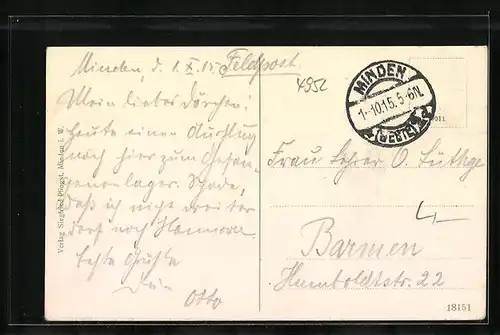 Minden, d. 1. X. 15.
Feldpost.
4952
MINDEN
1.10.15. 5-6N.
(WESTF.)
Mein liebes Dörchen,
heute einen Ausflug
nach hier zum Gefan-
genenlager. Schade,
daß ich nicht weiter
darf nach Hannover.
Beste Grüße
Dein
Otto
Frau Lehrer O. Lüthge
Barmen
Humboldtstr. 22
Verlag Siegfried Pfingst, Minden i. W.
18151